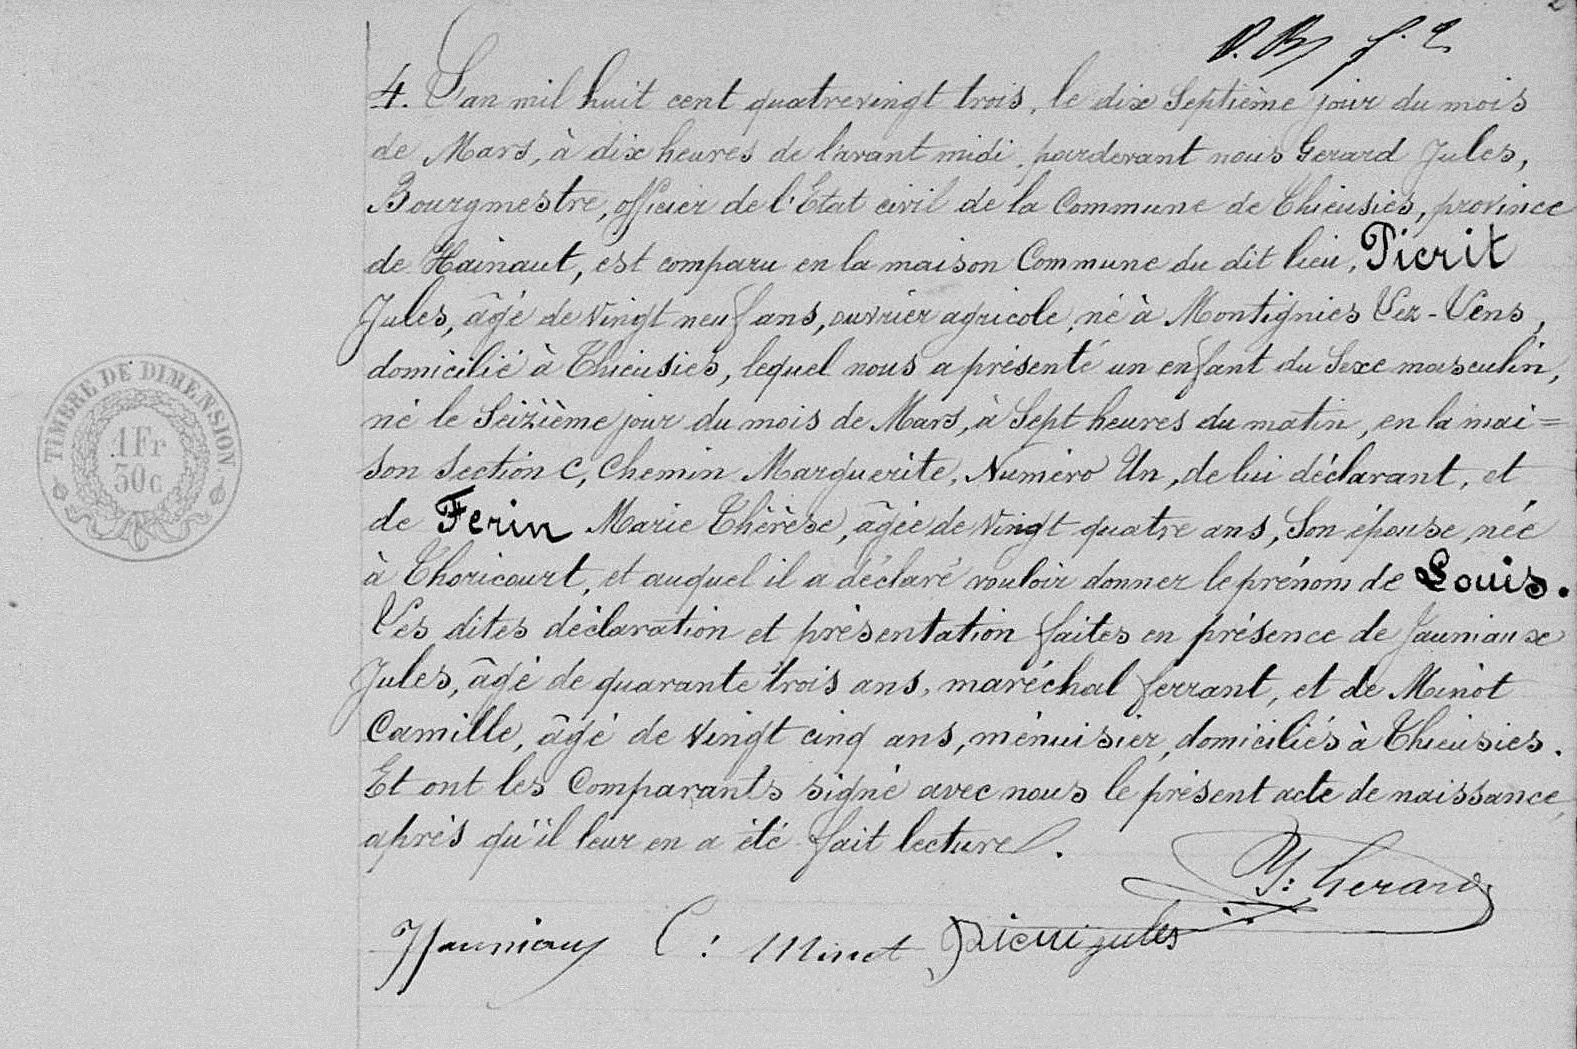 V. B. f. 2
4. L'an mil huit cent quatrevingt trois, le dix septième jour du mois
de Mars, à dix heures de l'avant midi, pardevant nous Gerard Jules,
Bourgmestre, officier de l'Etat civil de la Commune de Thieusies, province
de Hainaut, est comparu en la maison Commune du dit lieu, Pierit
Jules, âgé de vingt neuf ans, ouvrier agricole, né à Montignies Lez-Lens,
domicilié à Thieusies, lequel nous a présenté un enfant du Sexe masculin,
né le Seizième jour du mois de Mars, à Sept heures du matin, en la mai=
son section C, Chemin Marguerite, Numéro Un, de lui déclarant, et
de Ferin Marie Thérèse, âgée de vingt quatre ans, Son épouse, née
à Thoricourt, et auquel il a déclaré vouloir donner le prénom de Louis.
Les dites déclaration et présentation faites en présence de Jauniaux
Jules, âgé de quarante trois ans, maréchal ferrant, et de Minot
Camille, âgé de vingt cinq ans, ménuisier, domiciliés à Thieusies.
Et ont les Comparants signé avec nous le présent acte de naissance,
après qu'il leur en a été fait lecture.
J: Gerard
J Jauniaux C: Minot Pierit jules
TIMBRE DE DIMENSION
1 Fr
30c